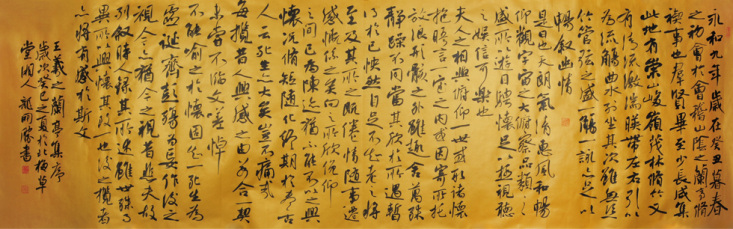 永和九年歲在癸丑暮春
之初會於會稽山陰之蘭亭脩
禊事也群賢畢至少長咸集
此地有崇山峻嶺茂林脩竹又
有清流激湍暎帶左右引以
為流觴曲水列坐其次雖無絲
竹管弦之盛一觴一詠亦足以
暢敘幽情
是日也天朗氣清惠風和暢
仰觀宇宙之大俯察品類之
盛所以遊目騁懷足以極視聽
之娛信可樂也
夫人之相與俯仰一世或取諸懷
抱晤言一室之內或因寄所托
放浪形骸之外雖趣舍萬殊
靜躁不同當其欣於所遇暫
得於己快然自足不知老之將
至及其所之既倦情隨事遷
感慨係之矣向之所欣俛仰
之間已為陳迹猶不能不以之興
懷況脩短隨化終期於盡古
人云死生亦大矣豈不痛哉
每攬昔人興感之由若合一契
未嘗不臨文嗟悼
不能喻之於懷固知一死生為
虛誕齊彭殤為妄作後之
視今亦猶今之視昔悲夫故
列敘時人錄其所述雖世殊事
異所以興懷其致一也後之攬者
亦將有感於斯文
王羲之蘭亭集序
歲次癸巳之夏於北梅草
堂閒人龍開勝書